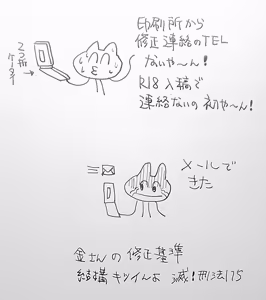 印刷所から
修正連絡のTEL
ないや〜ん!
R18入稿で
連絡ないの初や〜ん!
2つ折
ケータイ
メールで
きた
金さんの修正基準
結構キツイんよ 滅!刑法175